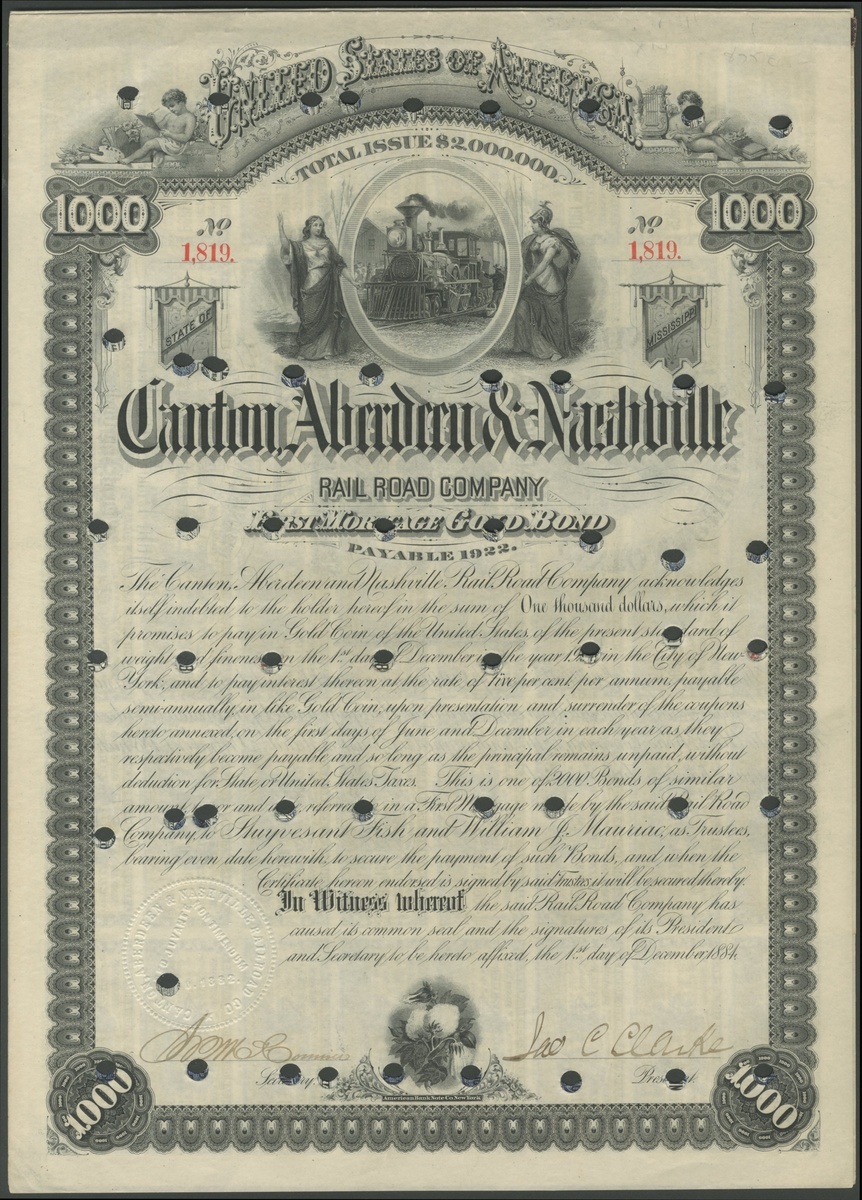 UNITED STATES OF AMERICA.
TOTAL ISSUE $2,000,000.
1000 1000
No No
1,819. 1,819.
STATE OF MISSISSIPPI
Canton, Aberdeen & Nashville
RAIL ROAD COMPANY
FIRST MORTGAGE GOLD BOND
PAYABLE 1922.
The Canton, Aberdeen and Nashville Rail Road Company acknowledges
itself indebted to the holder hereof in the sum of One thousand dollars, which it
promises to pay in Gold Coin of the United States, of the present standard of
weight and fineness on the 1st day of December in the year in the City of New-
York, and to pay interest thereon at the rate of Five per cent. per annum, payable
semi-annually, in like Gold Coin, upon presentation and surrender of the coupons
hereto annexed, on the first days of June and December in each year as they
respectively become payable and so long as the principal remains unpaid, without
deduction for State or United States Taxes. This is one of 2000 Bonds of similar
amount and referred in a First Mortgage made by the said Rail Road
Company, to Stuyvesant Fish and William J. Mauriac, as Trustees,
bearing even date herewith, to secure the payment of such Bonds, and when the
Certificate hereon endorsed is signed by said Trustees, it will be secured thereby.
In Witness whereof the said Rail Road Company has
caused its common seal and the signatures of its President
and Secretary to be hereto affixed, the 1st day of December, 1884.
Jno C Clarke
Secretary. President.
American Bank Note Co. New York
1000 1000